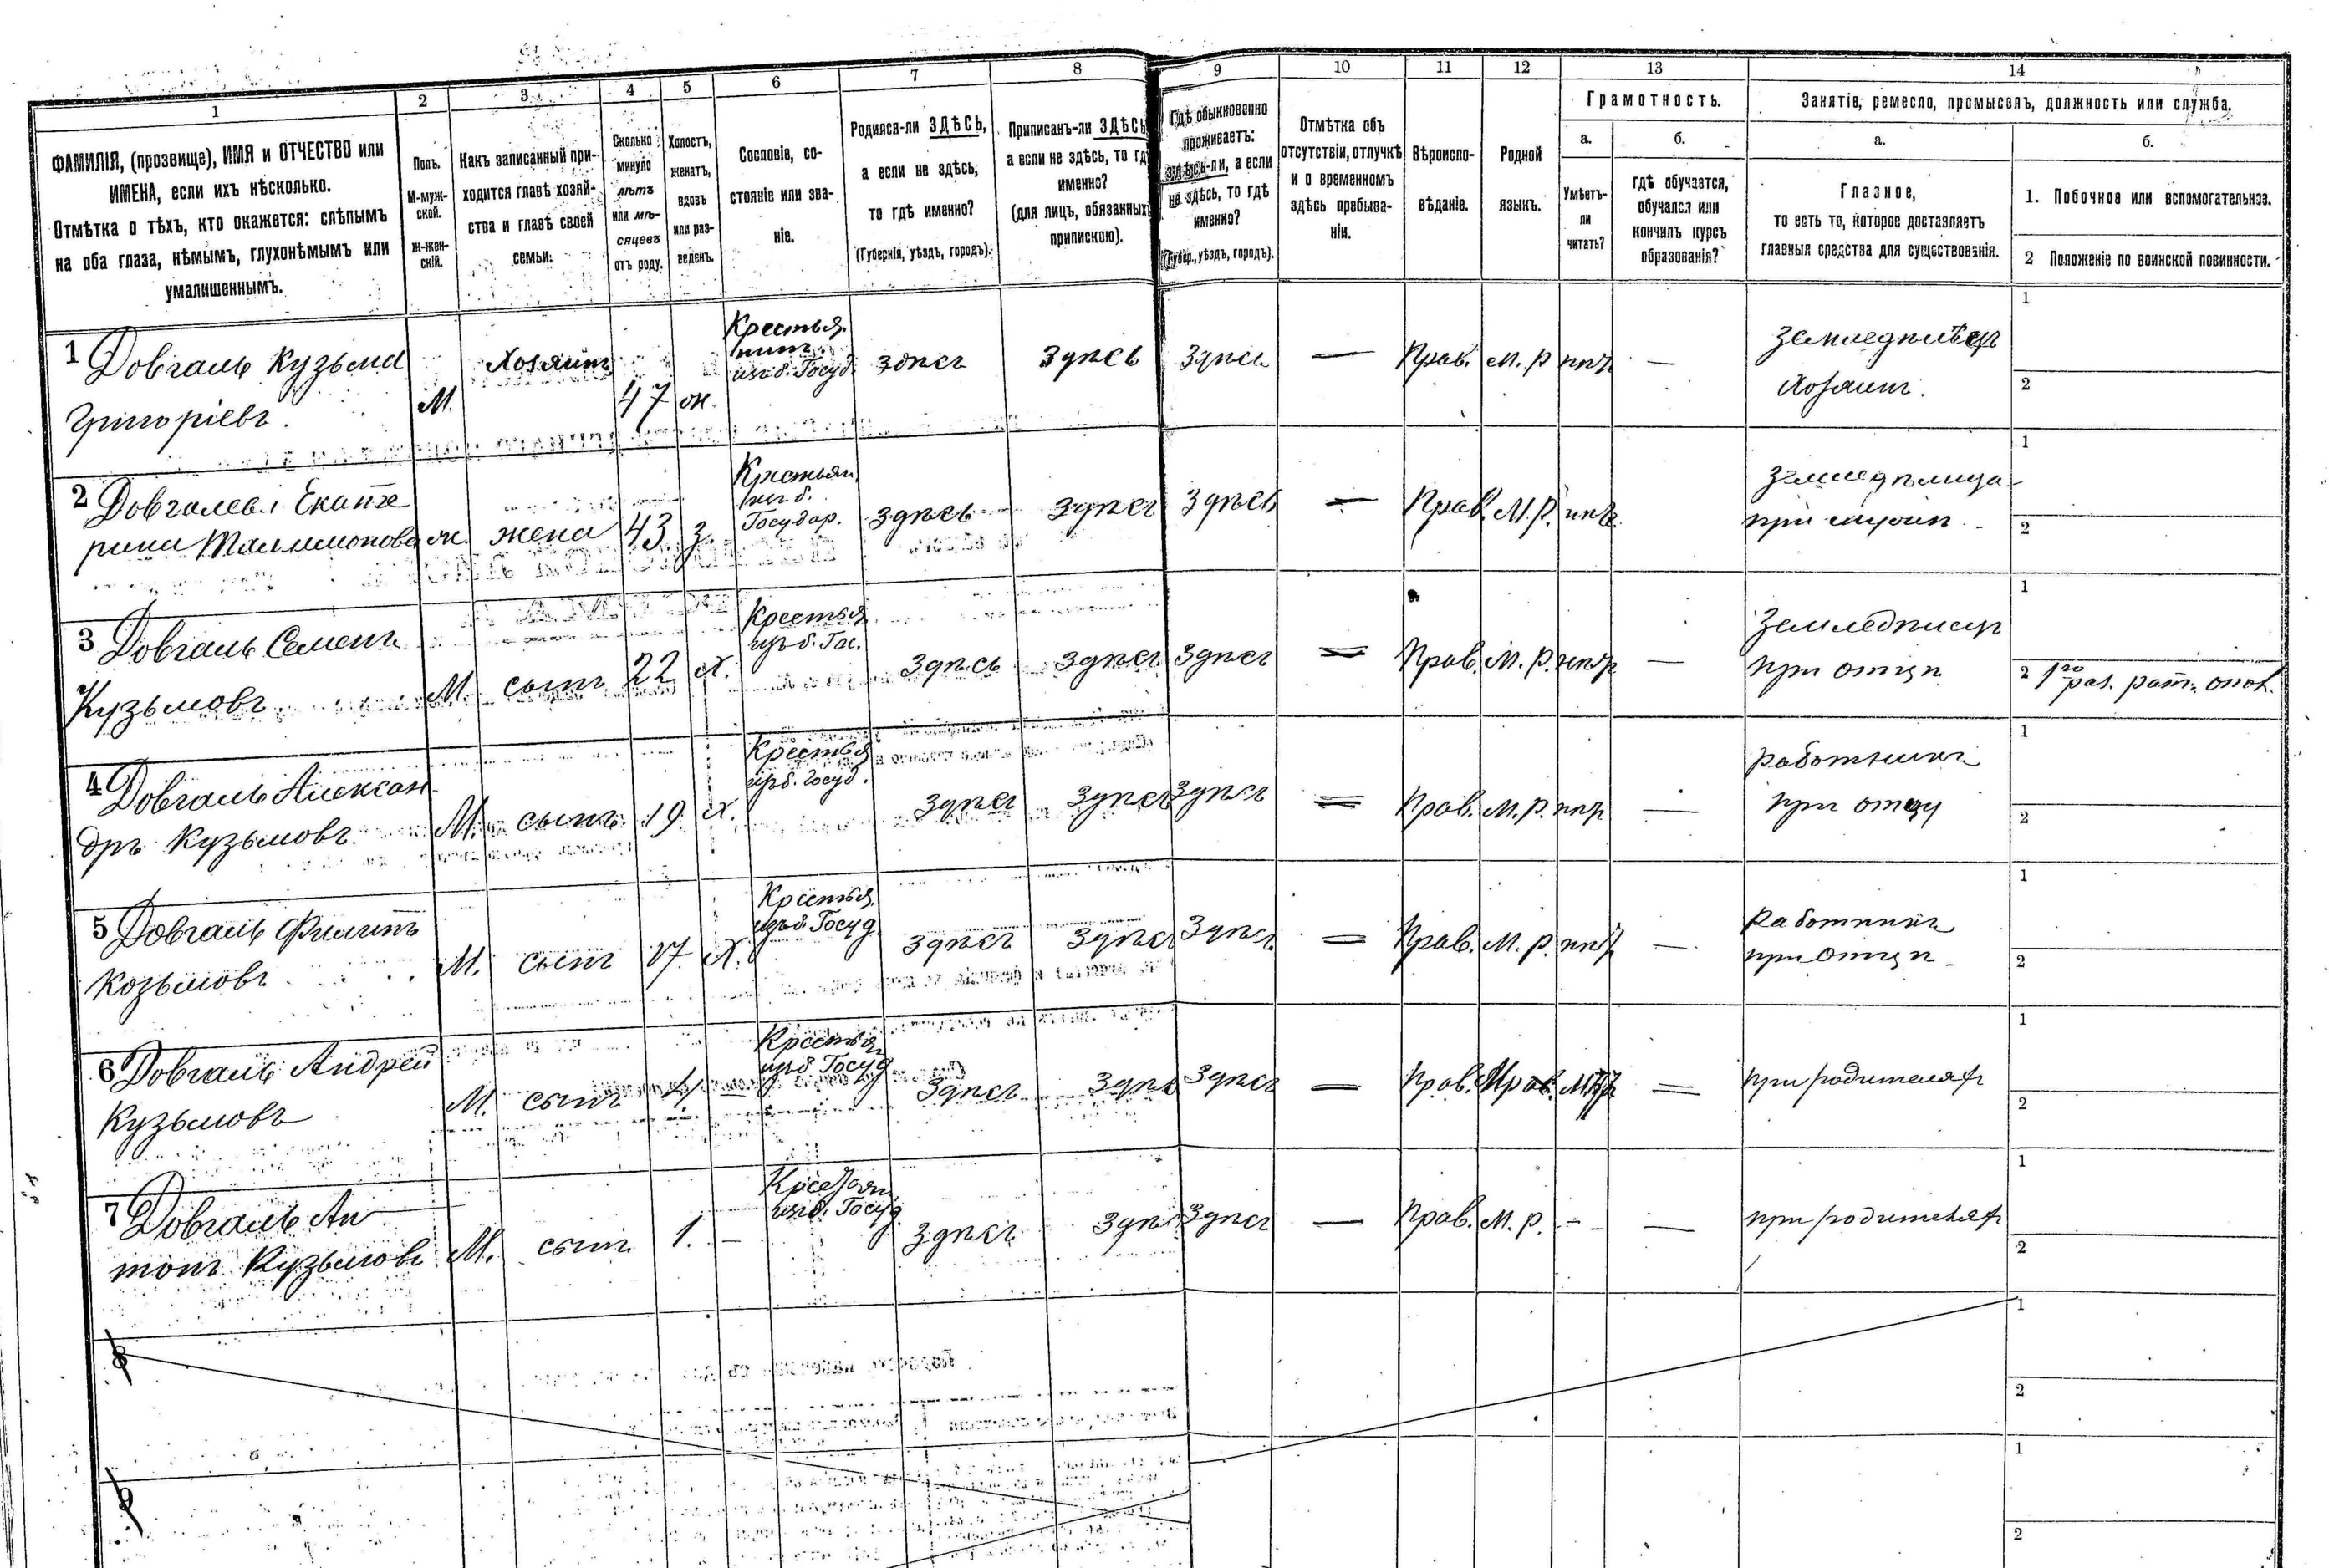 1 2 3 4 5 6 7 8 9 10 11 12 13 14
ФАМИЛІЯ, (прозвище), ИМЯ и ОТЧЕСТВО или
ИМЕНА, если ихъ нѣсколько.
Отмѣтка о тѣхъ, кто окажется: слѣпымъ
на оба глаза, нѣмымъ, глухонѣмымъ или
умалишеннымъ.
Полъ.
М-муж-
ской.
ж-жен-
скій.
Какъ записанный при-
ходится главѣ хозяй-
ства и главѣ своей
семьи.
Сколько
минуло
лѣтъ
или мѣ-
сяцевъ
отъ роду.
Холостъ,
женатъ,
вдовъ
или раз-
веденъ.
Сословіе, со-
стояніе или зва-
ніе.
Родился-ли ЗДѢСЬ,
а если не здѣсь,
то гдѣ именно?
(Губернія, уѣздъ, городъ).
Приписанъ-ли ЗДѢСЬ
а если не здѣсь, то гдѣ
именно?
(для лицъ, обязанныхъ
припискою).
Гдѣ обыкновенно
проживаетъ:
здѣсь-ли, а если
не здѣсь, то гдѣ
именно?
(Губер., уѣздъ, городъ).
Отмѣтка объ
отсутствіи, отлучкѣ
и о временномъ
здѣсь пребыва-
ніи.
Вѣроиспо-
вѣданіе.
Родной
языкъ.
Грамотность.
а.
Умѣетъ-
ли
читать?
б.
гдѣ обучается,
обучался или
кончилъ курсъ
образованія?
Занятіе, ремесло, промыселъ, должность или служба.
а.
Главное,
то есть то, которое доставляетъ
главныя средства для существованія.
б.
1. Побочное или вспомогательное.
2 Положеніе по воинской повинности.
1 Довгаль Кузьма
Григоріевъ.
М.
Хозяинъ
47
ж.
Крестья.
нинъ.
изъ б. Госуд.
здѣсь
здѣсь
здѣсь
—
Прав.
М. р
нѣтъ
—
Земледѣлецъ
Хозяинъ.
1
2
2 Довгалева Екате
рина
ж.
жена
43
з.
Крестьян.
изъ б.
Государ.
здѣсь
здѣсь
здѣсь
—
Прав.
М. р.
нѣтъ
при мужѣ
1
2
3 Довгаль Семенъ
Кузьмовъ
М.
сынъ
22
х.
Крестья
изъ б. Гос.
здѣсь
здѣсь
здѣсь
—
Прав.
М. р.
нѣтъ
—
Земледѣлецъ
при отцѣ
1
2 1го раз. рат. опол.
4 Довгаль Алексан
дръ Кузьмовъ.
М.
сынъ
19
х.
Крестья
изъ б. Госуд.
здѣсь
здѣсь
здѣсь
—
Прав.
М. р.
нѣтъ
—
работникъ
при отцу
1
2
5 Довгаль Филипъ
Козьмовъ
М.
сынъ
17.
х.
Крестья.
изъ б. Госуд.
здѣсь
здѣсь
здѣсь
—
Прав.
М. р.
нѣтъ
—
Работникъ
при отцѣ
1
2
6 Довгаль Андрей
Кузьмовъ
М.
сынъ
4
Крестья
изъ б. Госуд
здѣсь
здѣсь
здѣсь
—
Прав.
—
при родителяхъ
1
2
7 Довгаль Ан
тонъ Кузьмовъ
М.
сынъ
1.
—
Крестьян.
изъ б. Госуд.
здѣсь
здѣсь
здѣсь
—
Прав.
М. р.
—
—
при родителяхъ
1
2
8
1
2
9
1
2